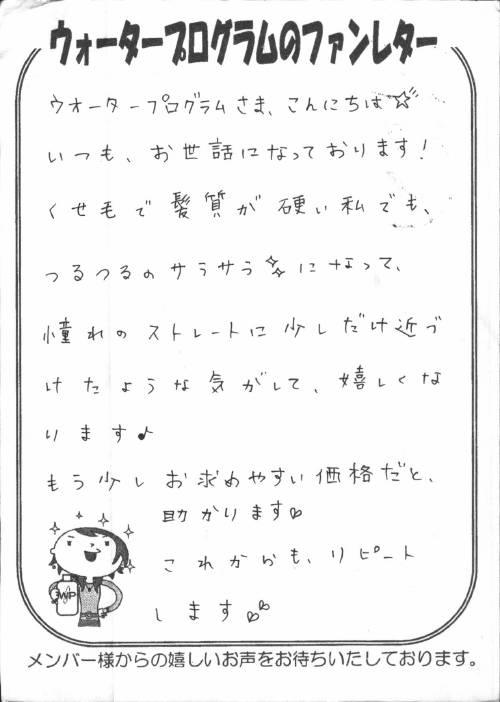 ウォータープログラムのファンレター
ウオータープログラムさま、こんにちは☆
いつも、お世話になっております!
くせ毛で髪質が硬い私でも、
つるつるのサラサラになって、
憧れのストレートに少しだけ近づ
けたような気がして、嬉しくな
ります♪
もう少しお求めやすい価格だと、
助かります♡
これからも、リピート
します♡♡
WP
メンバー様からの嬉しいお声をお待ちいたしております。